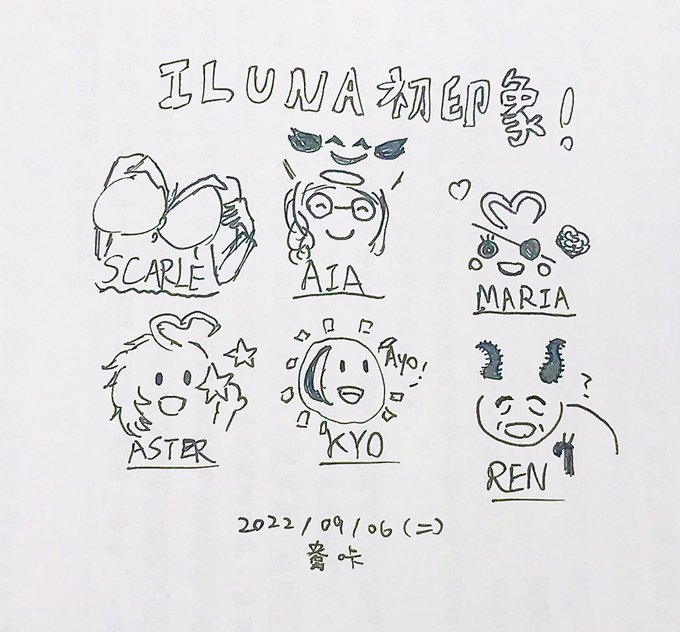 ILUNA初印象!
SCARLE
AIA
MARIA
ASTER
AYO!
KYO
?
REN
2022/09/06(二)
咔